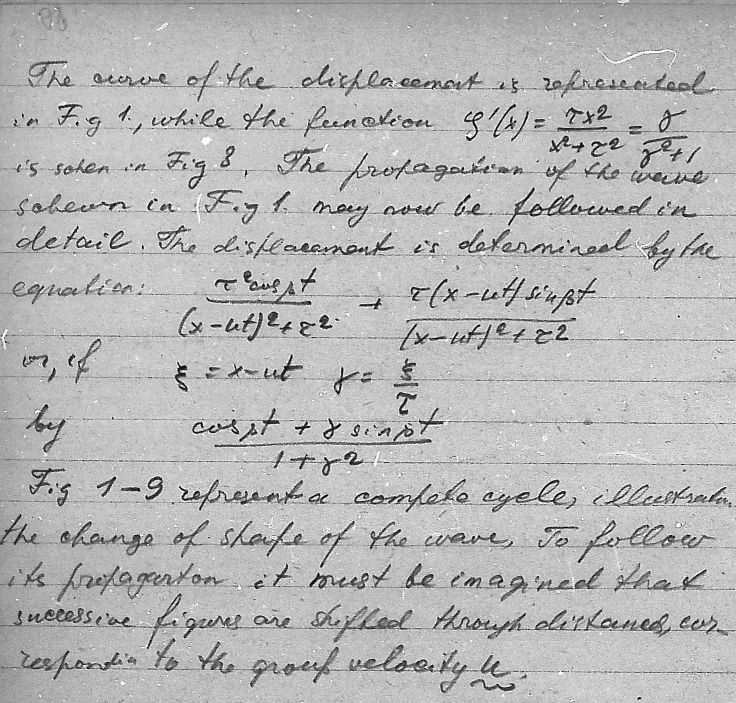 The curve of the displacement is represented
in Fig 1., while the function φ'(x) = τx2 / x²+τ2 = γ / γ²+1
is shown in Fig 8. The propagation of the wave
schewn in Fig 1. may now be followed in
detail. The displacement is determined by the
equation: τ²cospt / (x-ut)²+τ2 + τ(x-ut)sinpt / (x-ut)²+τ2
or, if ξ = x-ut γ = ξ / τ
by cospt + γ sinpt / 1+γ2
Fig 1-9 represent a complete cycle, illustratin
the change of shape of the wave. To follow
its propagarton it must be imagined that
successive figures are shifted through distances, cor
respondin to the group velocity u.